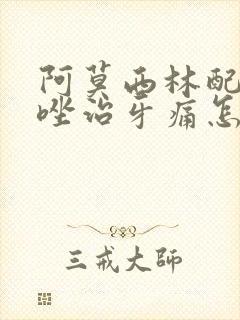 阿莫西林配
唑治牙痛怎
三戒大师